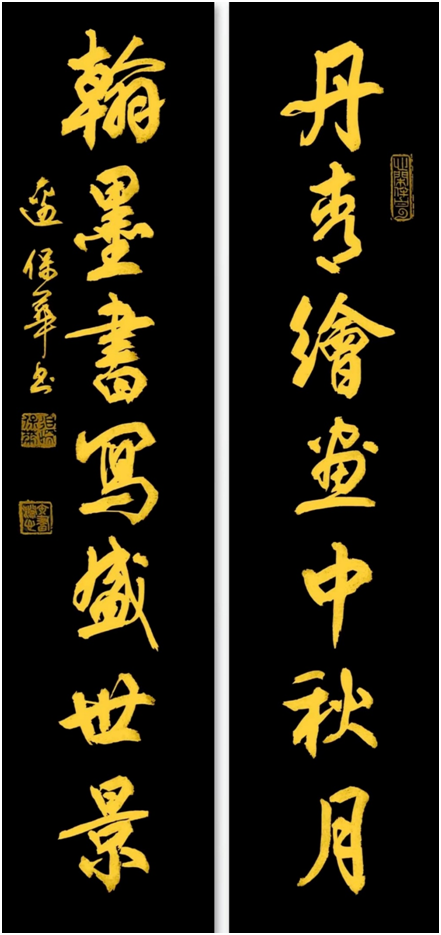 丹青繪畫中秋月
翰墨書寫盛世景
保華书